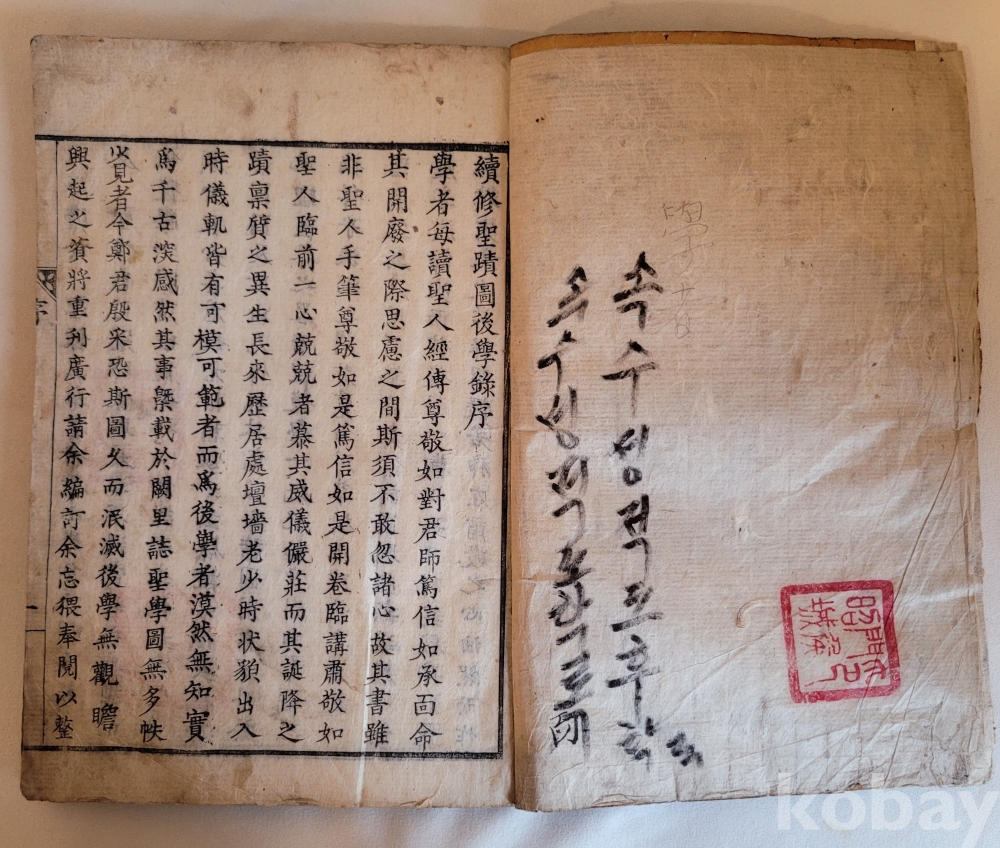 속수성적도후학록
續修聖蹟圖後學錄序
學者每讀聖人經傳尊敬如對君師篤信如承面命
其開廢之際思慮之間斯須不敢忽諸心故其書雖
非聖人手筆尊敬如是篤信如是開卷臨講肅敬如
聖人臨前一心兢兢者慕其威儀儼莊而其誕降之
蹟禀質之異生長來歷居處壇墻老少時状貌出入
時儀軌皆有可模可範者而爲後學者漠然無知實
爲千古淡感然其事槩載於闕里誌聖學圖無多帙
少見者今鄭君殷采恐斯圖久而泯滅後學無觀瞻
興起之資將重刊廣行請余編訂余忘猥奉閱以整
序
一
kobay